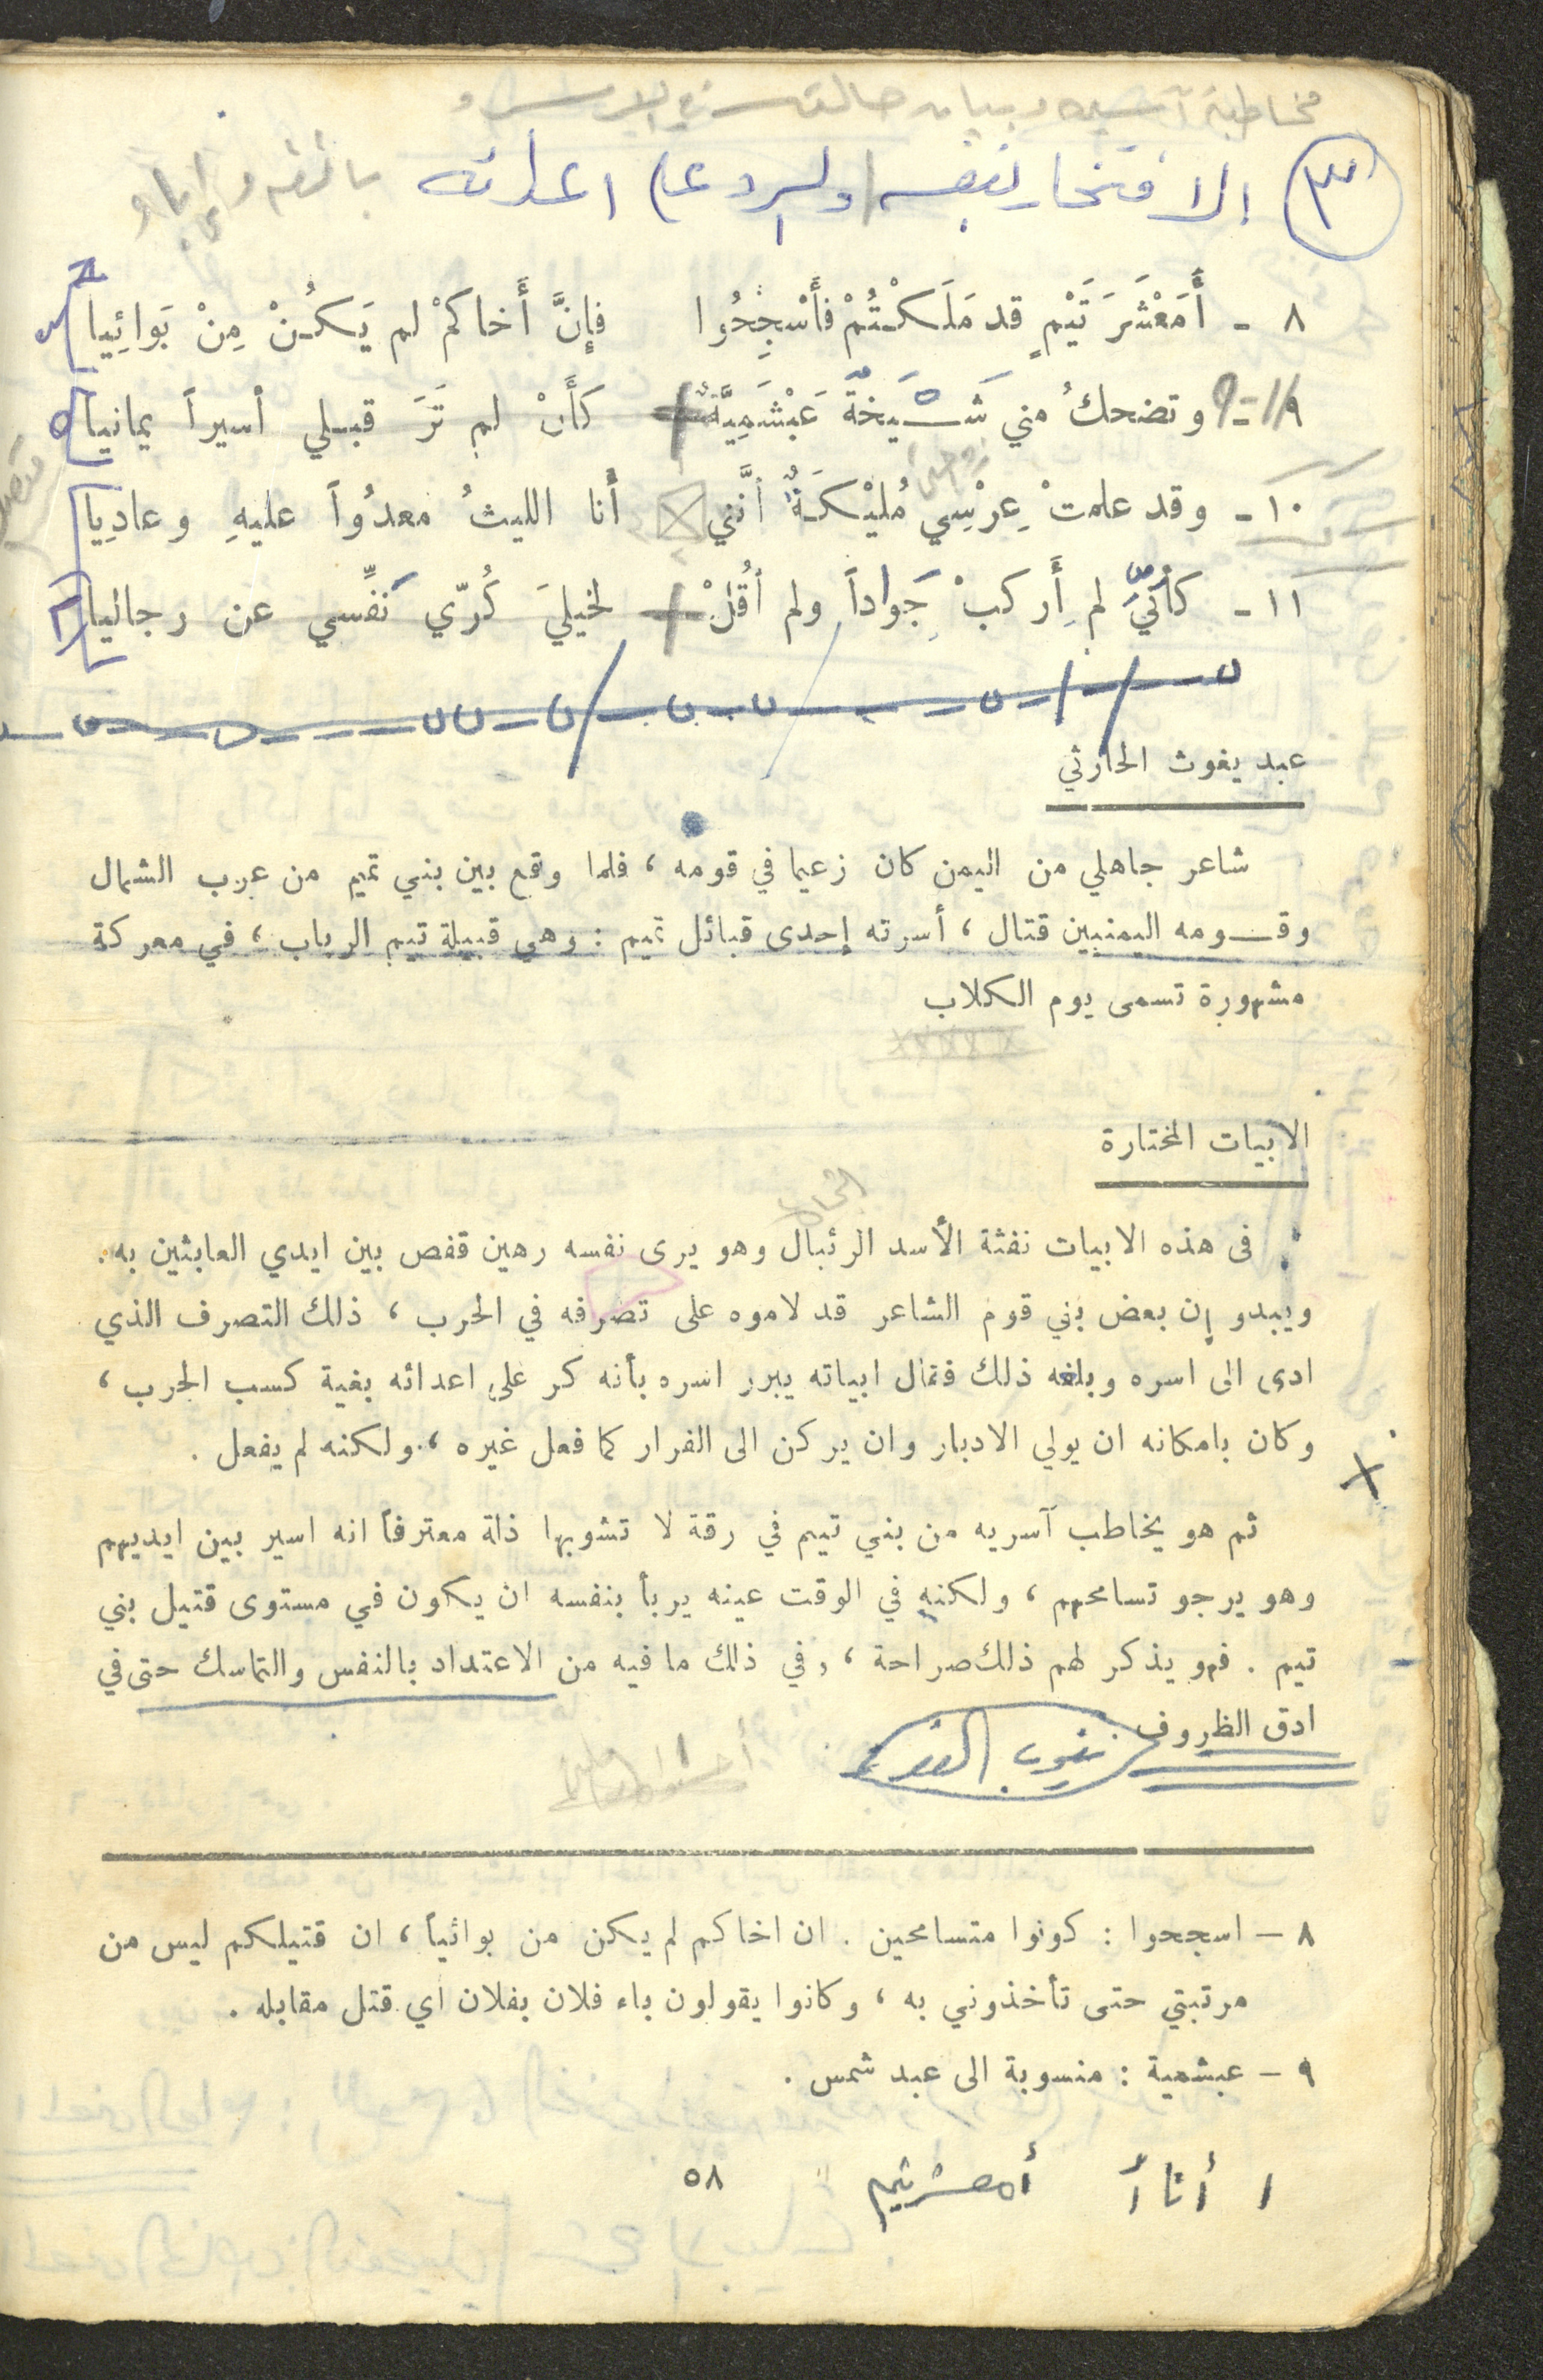 مخاطبة آسريه وبيان حالته في الاسر و
٣ الافتخار بنفسه والرد على اعدائه
٨ - أَمَعْشَرَ تَيْمٍ قد مَلَكْتُمْ فأَسْجِحُوا فإِنَّ أَخاكمْ لم يَكُنْ مِنْ بَوائِيا
٩ - وتضحكُ مني شَيخةٌ عَبْشَمِيَّةٌ كَأَنْ لم تَرَ قبلي أسيراً يمانيا
١٠ - وقد علمتْ عِرْسِي مُليْكَةٌ أنَّني أنا الليثُ معدُواً عليهِ وعادِيا
١١ - كأنيَّ لم أَركبْ جَواداً ولم أقُلْ لخيليَ كُرّي نَفِّسي عن رجاليا
عبد يغوث الحارثي
شاعر جاهلي من اليمن كان زعيما في قومه ، فلما وقع بين بني تميم من عرب الشمال
وقومه اليمنيين قتال ، أسرته إحدى قبائل تميم : وهي قبيلة تيم الرباب ، في معركة
مشهورة تسمى يوم الكلاب
الابيات المختارة
في هذه الابيات نفثة الأسد الرئبال وهو يرى نفسه رهين قفص بين ايدي العابثين به .
ويبدو إن بعض بني قوم الشاعر قد لاموه على تصرفه في الحرب ، ذلك التصرف الذي
ادى الى اسره وبلغه ذلك فقال ابياته يبرر اسره بأنه كر على اعدائه بغية كسب الحرب ،
وكان بامكانه ان يولي الادبار وان يركن الى الفرار كما فعل غيره ، ولكنه لم يفعل .
ثم هو يخاطب آسريه من بني تيم في رقة لا تشوبها ذلة معترفاً انه اسير بين ايديهم
وهو يرجو تسامحهم ، ولكنه في الوقت عينه يربأ بنفسه ان يكون في مستوى قتيل بني
تيم . فهو يذكر لهم ذلك صراحة ، وفي ذلك ما فيه من الاعتداد بالنفس والتماسك حتى في
ادق الظروف .
٨ - اسجحوا : كونوا متسامحين . ان اخاكم لم يكن من بوائياً ، ان قتيلكم ليس من
مرتبتي حتى تأخذوني به ، وكانوا يقولون باء فلان بفلان اي قتل مقابله .
٩ - عبشمية : منسوبة الى عبد شمس .
٥٨
أمعشر تيم